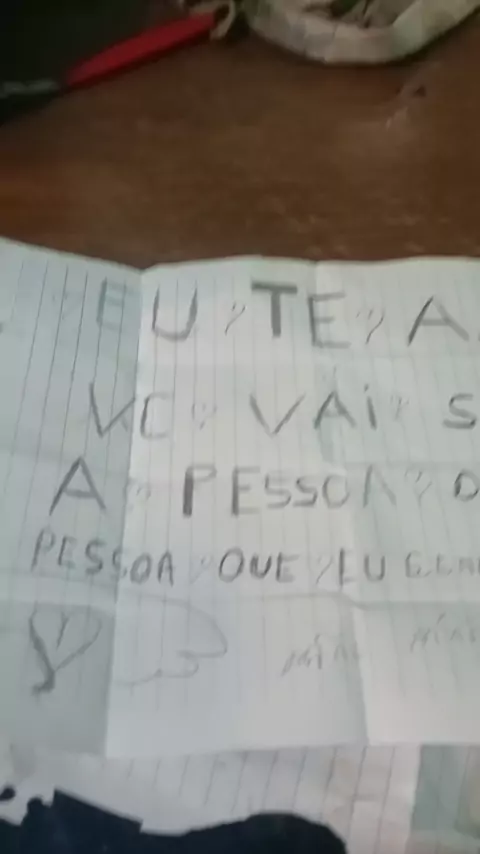 EU ? TE ? A
VC ? VAI ? S
A ? PESSOA ? D
PESSOA ? QUE ? EU